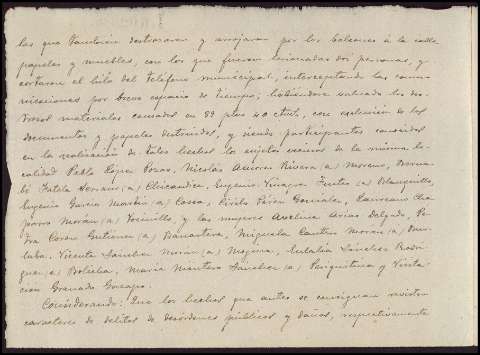 las que también destrozaron y arrojaron por los balcones á la calle
papeles y muebles, con los que fueron lesionadas dos personas, y
cortaron el hilo del teléfono municipal, interceptando las comu-
nicaciones por breve espacio de tiempo; habiéndose valuado los des-
trozos materiales causados en 89 ptas 40 ctms, con exclusión de los
documentos y papeles destruidos, y siendo participantes conocidos
en la realización de tales hechos los sujetos vecinos de la misma lo-
calidad Pablo López Pozas, Nicolás Rivera (a) Moreno, Berna-
bé Serrano (a) Eugenio Vinagre Fuentes (a)
Eugenio García Martín (a) Casca, Cirilo González, Laureano Cha-
parro Morán (a) Vocinillo, y las mujeres Avelina Arias Delgado, Pe-
dra Gutiérrez (a) Miguela Morán (a)
Vicenta Sánchez (a) Eulalia Sánchez Rodrí-
guez (a) María Montero Sánchez (a) y Visita-
ción Granado
Considerando: Que los hechos que antes se consignan revisten
caracteres de delitos de desórdenes públicos y daños, respectivamente